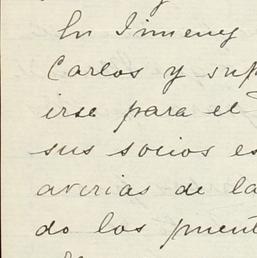 En Jimeny
Carlos y sup
irse para el
sus socios es
averias de la
do los puent